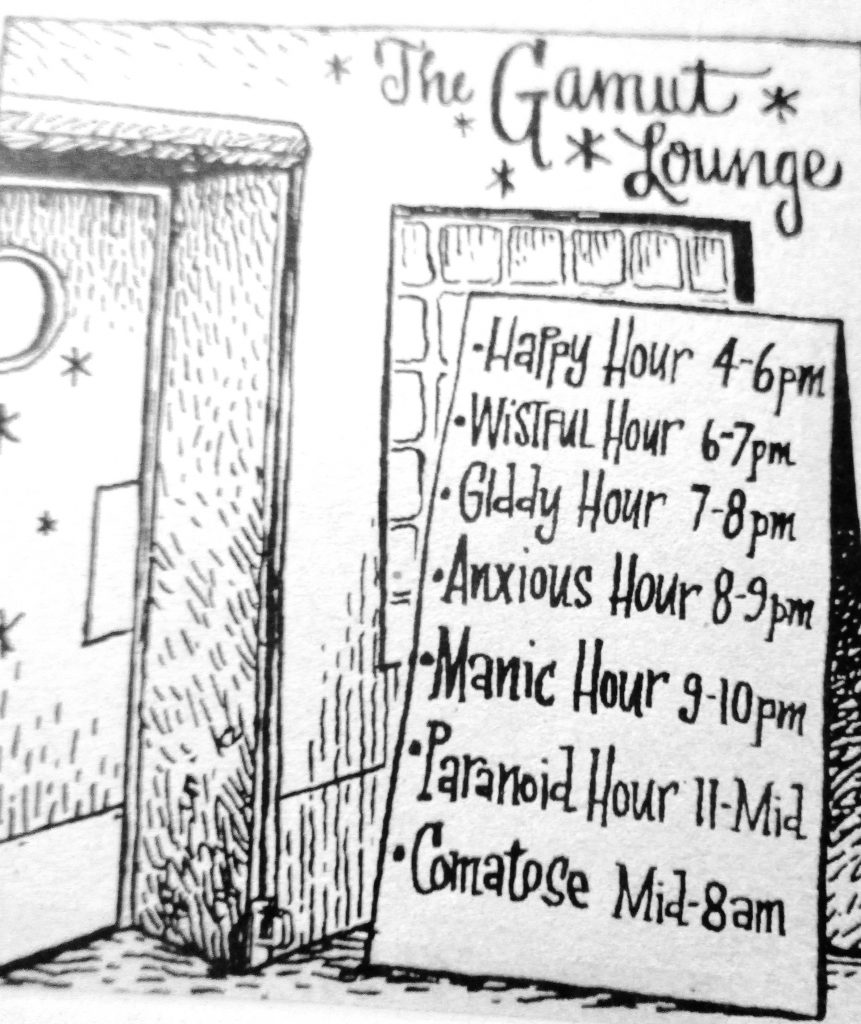 The Gamut
Lounge
•Happy Hour 4-6pm
•Wistful Hour 6-7pm
•Giddy Hour 7-8pm
•Anxious Hour 8-9pm
•Manic Hour 9-10pm
•Paranoid Hour 11-Mid
•Comatose Mid-8am